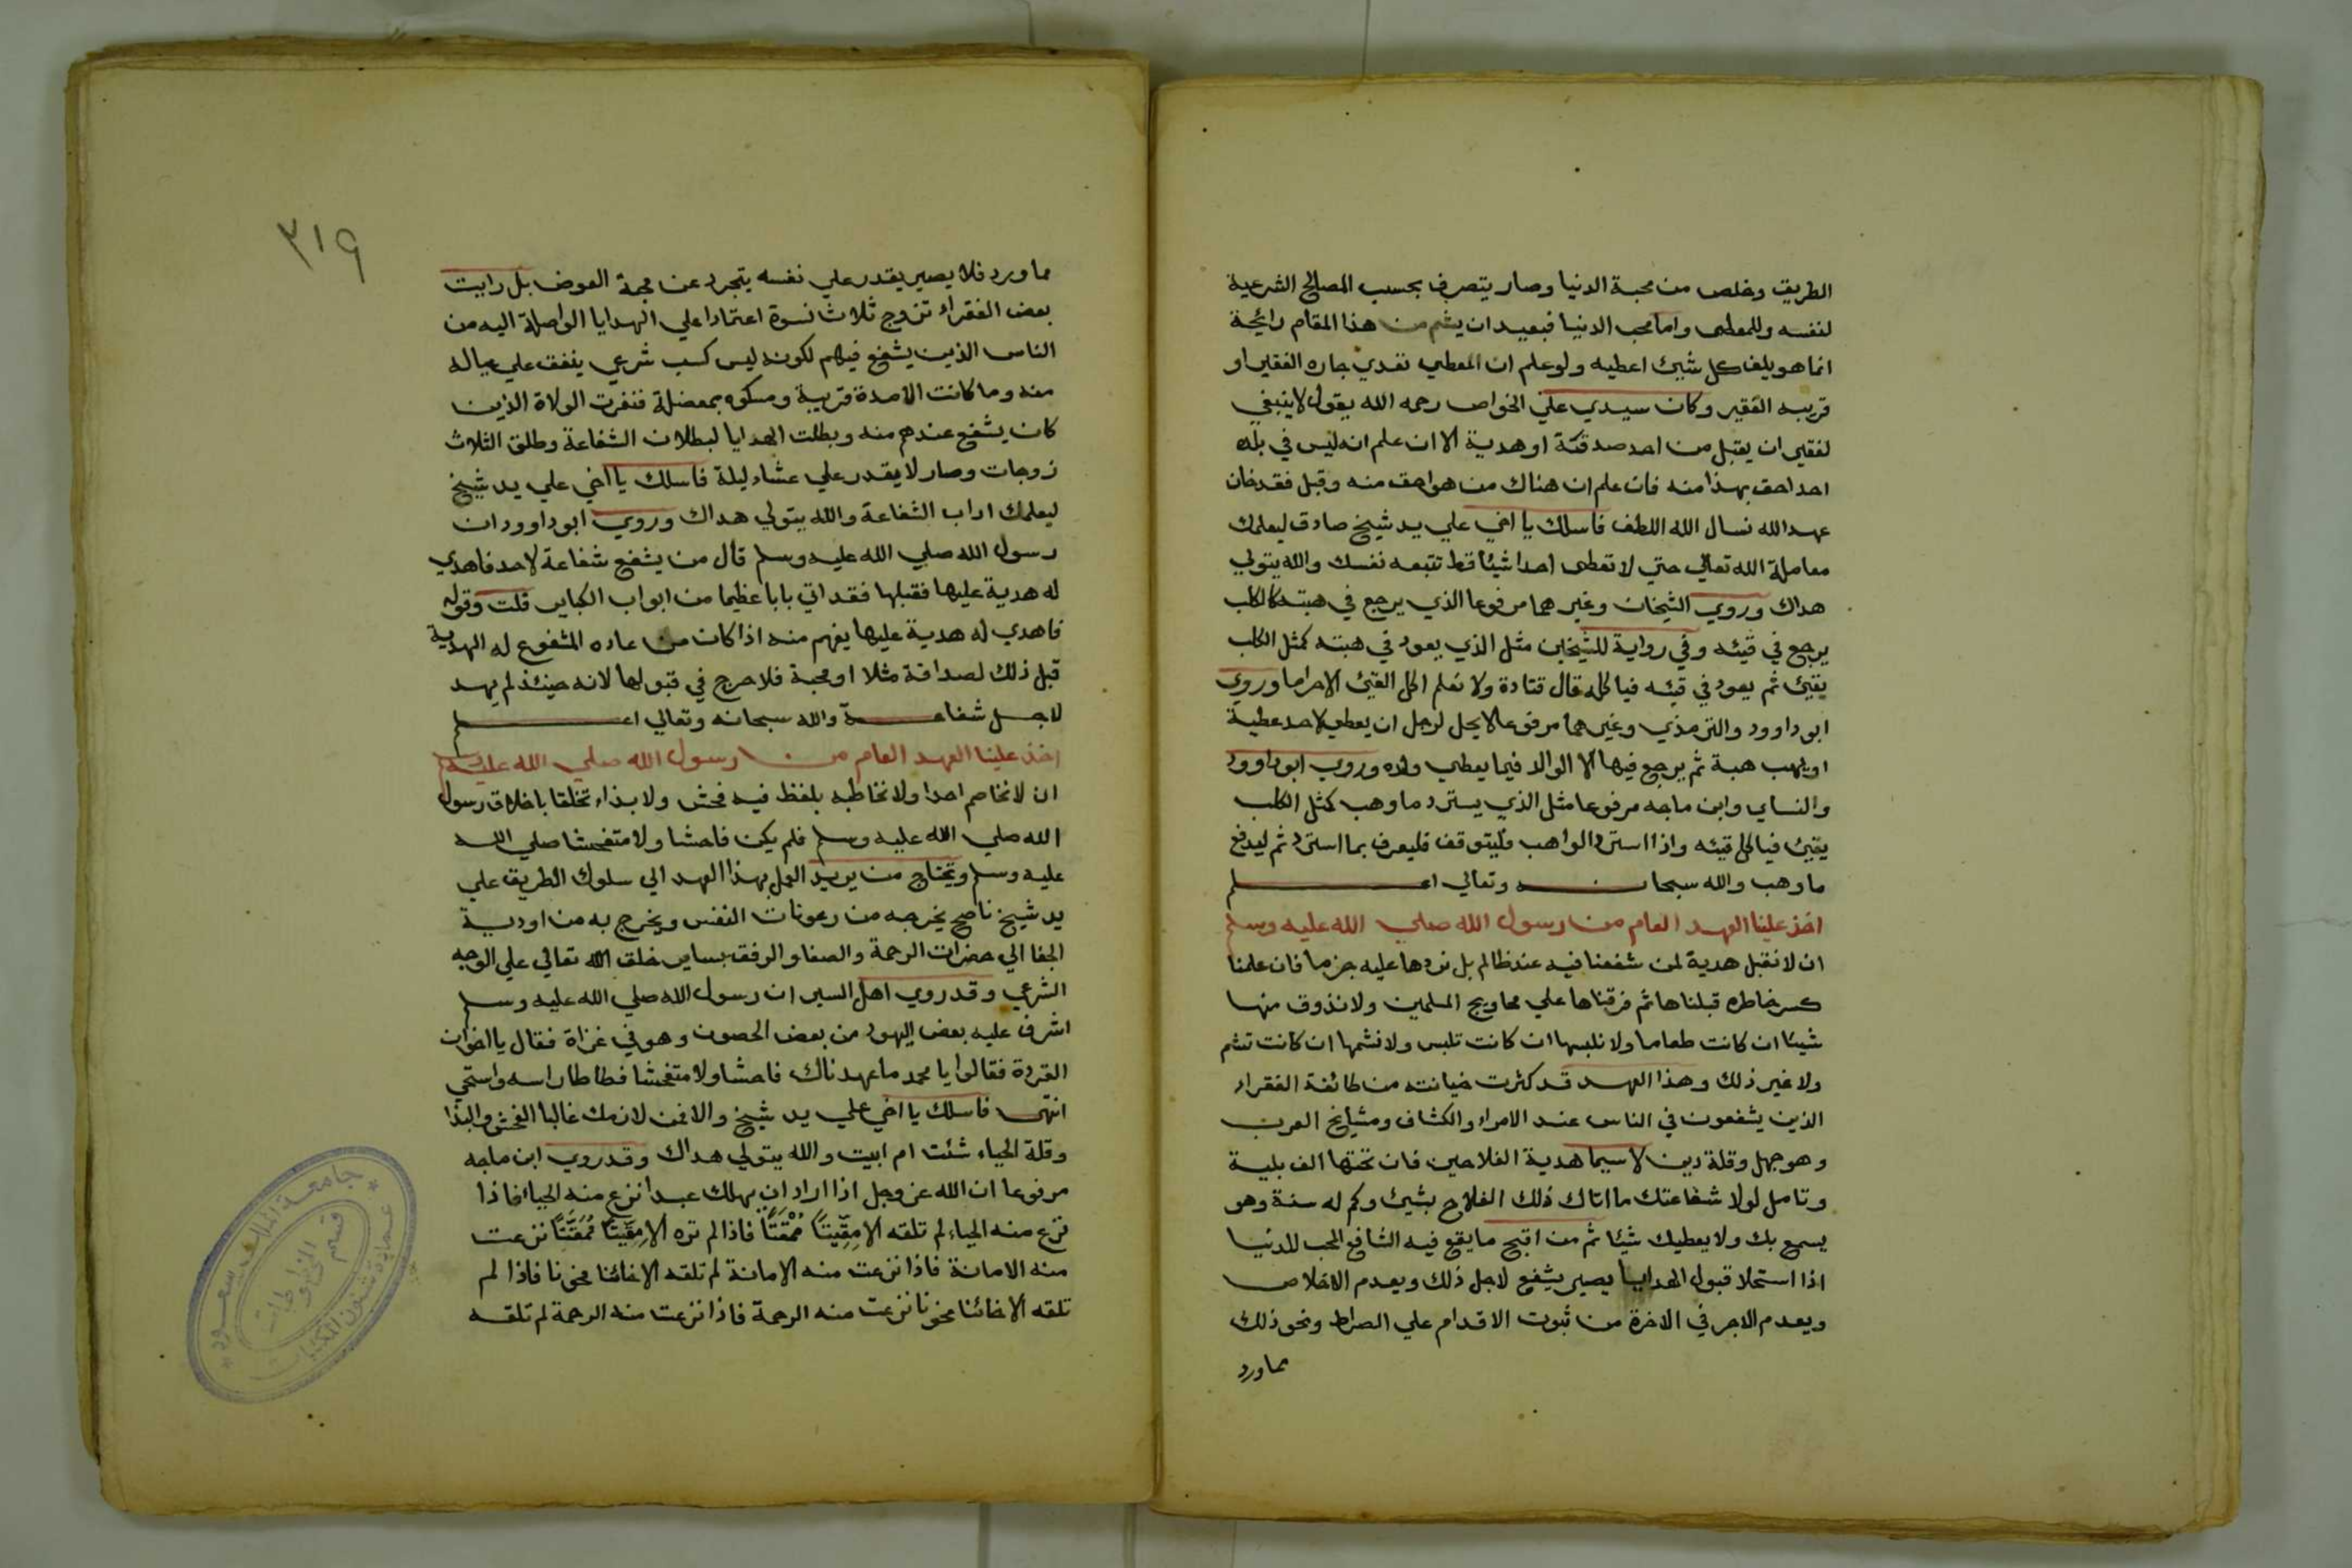 الطريق وخلص من محبة الدنيا وصار يتصرف بحسب المصالح الشرعية
لنفسه وللمعطى واما محب الدنيا فبعيد ان يشم من هذا المقام رائحة
انما هو يلف كل شيئ اعطيه ولو علم ان المعطي تعدي جاره الفقير او
قريبه الفقير وكان سيدي علي الخواص رحمه الله يقول لا ينبغي
لفقير ان يقبل من احد صدقة او هدية الا ان علم انه ليس في بلده
احد احق بهذا منه فان علم ان هناك من هو احق منه وقبل فقد خان
عهد الله نسال الله اللطف فاسلك يا اخي علي يد شيخ صادق ليعلمك
معاملة الله تعالي حتي لا تعطى احدا شيئا قط تتبعه نفسك والله يتولي
هداك وروي الشيخان وغيرهما مرفوعا الذي يرجع في هبته كالكلب
يرجع في قيئه وفي رواية للشيخين مثل الذي يعود في هبته كمثل الكلب
يقيئ ثم يعود في قيئه فياكله قال قتادة ولا نعلم اكل القيئ الا حراما وروي
ابو داوود والترمذي وغيرهما مرفوعا لا يحل لرجل ان يعطي لاحد عطية
او يهب هبة ثم يرجع فيها الا الوالد فيما يعطي ولده وروي ابو داوود
والنساي وابن ماجه مرفوعا مثل الذي يسترد ما وهب كمثل الكلب
يقيئ فياكل قيئه واذا استرد الواهب فليتوقف فليعرف بما استرد ثم ليدفع
ما وهب والله سبحانه وتعالي اعلم
اخذ علينا العهد العام من رسول الله صلي الله عليه وسلم
ان لا نقبل هدية لمن شفعنا فيه عند ظالم بل نردها عليه جزما فان علمنا
كسر خاطره قبلناها ثم فرقناها علي محاويج المسلمين ولا نذوق منها
شيئا ان كانت طعاما ولا نلبسها ان كانت تلبس ولا نشمها ان كانت تشم
ولا غير ذلك وهذا العهد قد كثرت خيانته من طائفة الفقراء
الذين يشفعون في الناس عند الامراء والكشاف ومشايخ العرب
وهو جهل وقلة دين لا سيما هدية الفلاحين فان تحتها الف بلية
وتامل لولا شفاعتك ما اتاك ذلك الفلاح بشيئ وكم له سنة وهو
يسمع بك ولا يعطيك شيئا ثم من اقبح ما يقع فيه الشافع المحب للدنيا
اذا استحلا قبول الهدايا يصير يشفع لاجل ذلك ويعدم الاخلاص
ويعدم الاجر في الاخرة من ثبوت الاقدام علي الصراط ونحو ذلك
مما ورد
٣١٩
مما ورد فلا يصير يقدر علي نفسه يتجرد عن محبة العوض بل رايت
بعض الفقراء تزوج ثلاث نسوة اعتمادا علي الهدايا الواصلة اليه من
الناس الذين يشفع فيهم لكونه ليس كسب شرعي ينفق علي عياله
منه وما كانت الا مدة قريبة ومسكوه بمعضلة فنفرت الولاة الذين
كان يشفع عندهم منه وبطلت الهدايا لبطلان الشفاعة وطلق الثلاث
زوجات وصار لا يقدر علي عشاء ليلة فاسلك يا اخي علي يد شيخ
ليعلمك اداب الشفاعة والله يتولي هداك وروي ابو داوود ان
رسول الله صلي الله عليه وسلم قال من يشفع شفاعة لاحد فاهدي
له هدية عليها فقبلها فقد اتي بابا عظيما من ابواب الكباير قلت وقوله
فاهدي له هدية عليها يفهم منه اذا كان من عاده المشفوع له الهدية
قبل ذلك لصداقة مثلا او محبة فلا حرج في قبولها لانه حينئذ لم يهد
لاجل شفاعة والله سبحانه وتعالي اعلم
اخذ علينا العهد العام من رسول الله صلي الله عليه وسلم
ان لا نخاصم احدا ولا نخاطبه بلفظ فيه فحش ولا بذاء تخلقا باخلاق رسول
الله صلي الله عليه وسلم فلم يكن فاحشا ولا متفحشا صلي الله
عليه وسلم ويحتاج من يريد العمل بهذا العهد الي سلوك الطريق علي
يد شيخ ناصح يخرجه من رعونات النفس ويخرج به من اودية
الجفا الي حضرات الرحمة والصفا والرفق بساير خلق الله تعالي علي الوجه
الشرعي وقد روي اهل السير ان رسول الله صلي الله عليه وسلم
اشرف عليه بعض اليهود من بعض الحصون وهو في غزاة فقال يا اخوان
القردة فقالوا يا محمد ما عهدناك فاحشا ولا متفحشا فطاطا راسه واستحي
انتهى فاسلك يا اخي علي يد شيخ والا فمن لازمك غالبا الفحش والبذا
وقلة الحياء شئت ام ابيت والله يتولي هداك وقد روي ابن ماجه
مرفوعا ان الله عز وجل اذا اراد ان يهلك عبدا نزع منه الحياء فاذا
نزع منه الحياء لم تلقه الا مِقِّيتًا مُمْقَتًا فاذا لم تره الا مِقِّيتًا مُمَقَّتًا نزعت
منه الامانة فاذا نزعت منه الامانة لم تلقه الا خائنا مخونا فاذا لم
تلقه الا خائنا مخونا نزعت منه الرحمة فاذا نزعت منه الرحمة لم تلقه
جامعة الملك سعود
عمادة شئون المكتبات
قسم المخطوطات